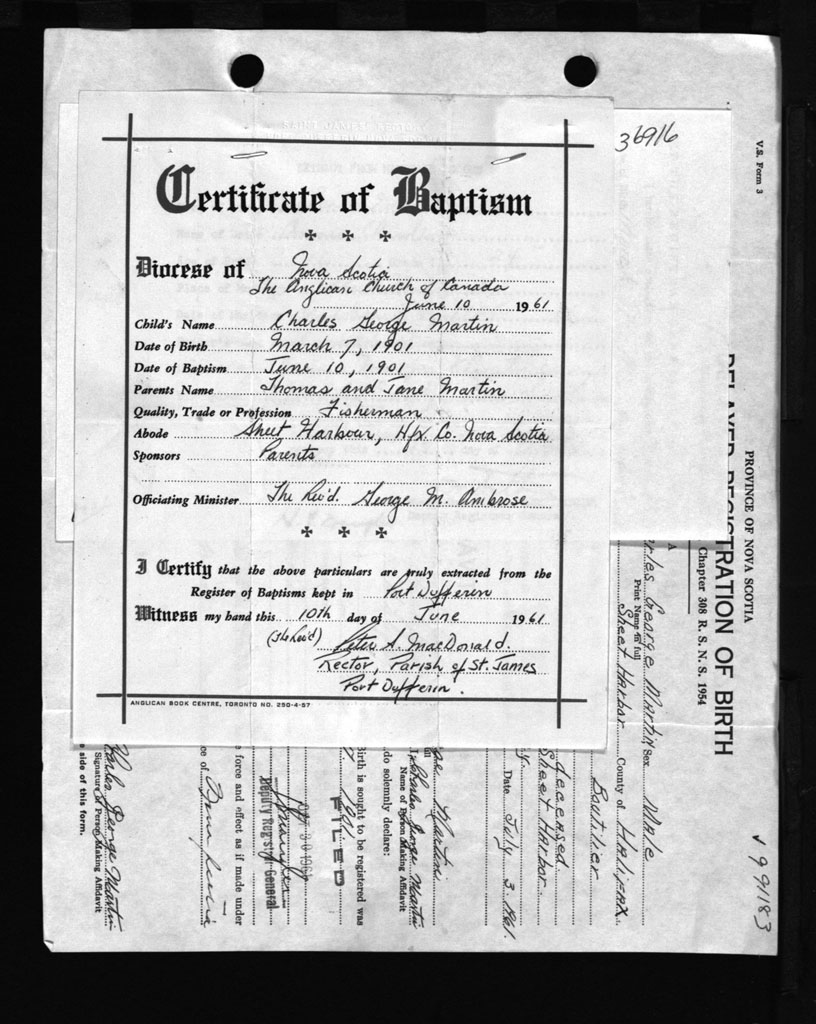 36916
V.S. Form 3
Certificate of Baptism
Diocese of Nova Scotia
The Anglican Church of Canada
June 10 1961
Child's Name Charles George Martin
Date of Birth March 7, 1901
Date of Baptism June 10, 1901
Parents Name Thomas and Jane Martin
Quality, Trade or Profession Fisherman
Abode Sheet Harbour, Hfx Co. Nova Scotia
Sponsors Parents
Officiating Minister The Rev'd. George M. Ambrose
I Certify that the above particulars are truly extracted from the
Register of Baptisms kept in Port Dufferin
Witness my hand this 10th day of June 1961
(The Rev'd) Peter A. MacDonald.
Rector, Parish of St. James
Port Dufferin.
ANGLICAN BOOK CENTRE, TORONTO NO. 290-4-57
PROVINCE OF NOVA SCOTIA
DELAYED REGISTRATION OF BIRTH
Chapter 308 R. S. N. S. 1954
A
rles George Martin Sex Male
Print Name in full
Sheet Harbor County of Halifax
Boutilier
deceased
Sheet Harbor
Date July 3, 1961
Martin
Charles George Martin
Name of Person Making Affidavit
do solemnly declare:
Birth is sought to be registered was
1901
FILED
OCT 30 1961
Deputy Registrar General
e force and effect as if made under
ce of
Charles George Martin
Signature of Person Making Affidavit
side of this form.
v 991183